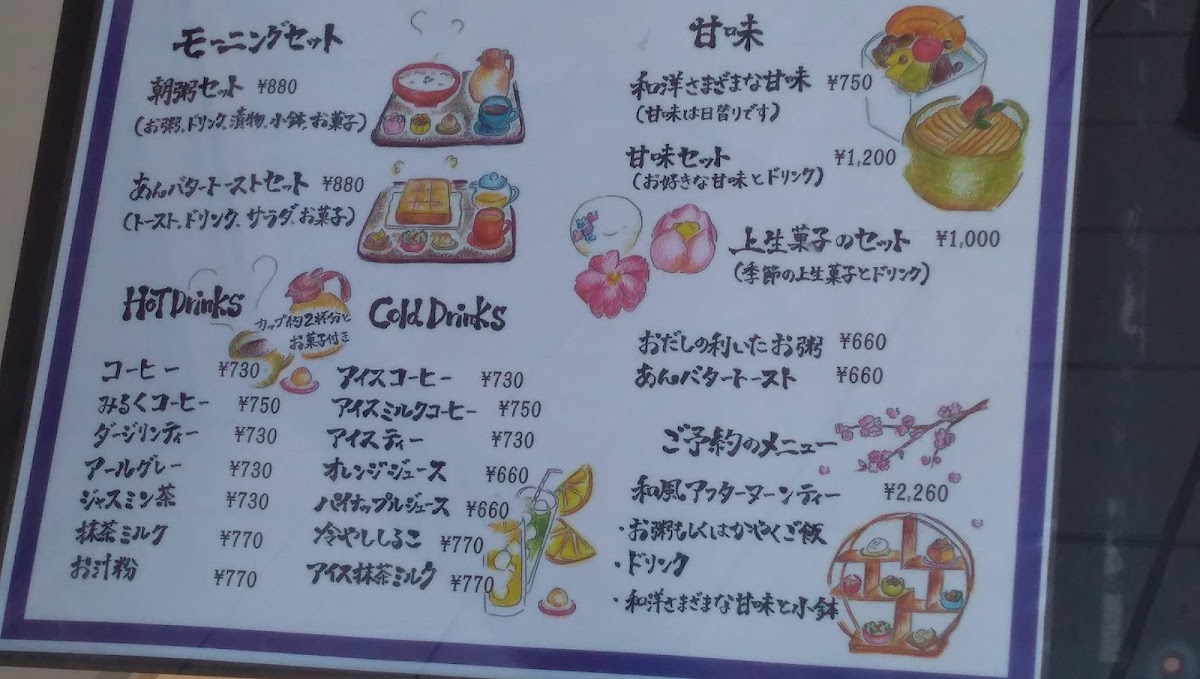 モーニングセット
朝粥セット ¥880
(お粥、ドリンク、漬物、小鉢、お菓子)
あんバタートーストセット ¥880
(トースト、ドリンク、サラダ、お菓子)
HoT Drinks
カップ約2杯分と
お菓子付き
コーヒー ¥730
みるくコーヒー ¥750
ダージリンティー ¥730
アールグレー ¥730
ジャスミン茶 ¥730
抹茶ミルク ¥770
お汁粉 ¥770
Cold Drinks
アイスコーヒー ¥730
アイスミルクコーヒー ¥750
アイスティー ¥730
オレンジジュース ¥660
パイナップルジュース ¥660
冷やししるこ ¥770
アイス抹茶ミルク ¥770
甘味
和洋さまざまな甘味 ¥750
(甘味は日替りです)
甘味セット ¥1,200
(お好きな甘味とドリンク)
上生菓子のセット ¥1,000
(季節の上生菓子とドリンク)
おだしの利いたお粥 ¥660
あんバタートースト ¥660
ご予約のメニュー
和風アフターヌーンティー ¥2,260
・お粥もしくはかやくご飯
・ドリンク
・和洋さまざまな甘味と小鉢